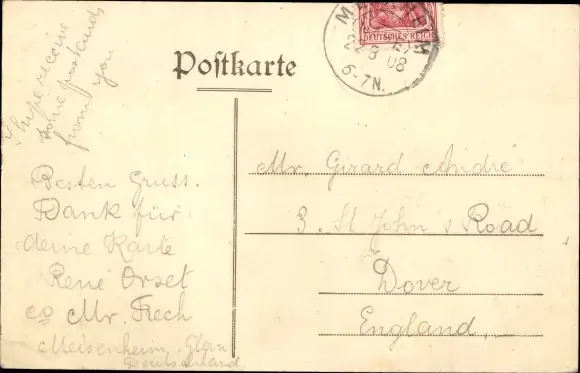 I hope receive
some postcards
from you
Postkarte
DEUTSCHES REICH
08
6-7N.
Besten Gruss.
Dank für
deine Karte
René Orset
co Mr. Frech
Meisenheim Glan
Deutschland.
Mr. Girard André
3. St John's Road
Dover
England,